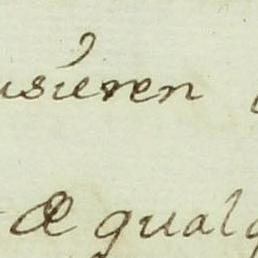 usieren
æ qualq